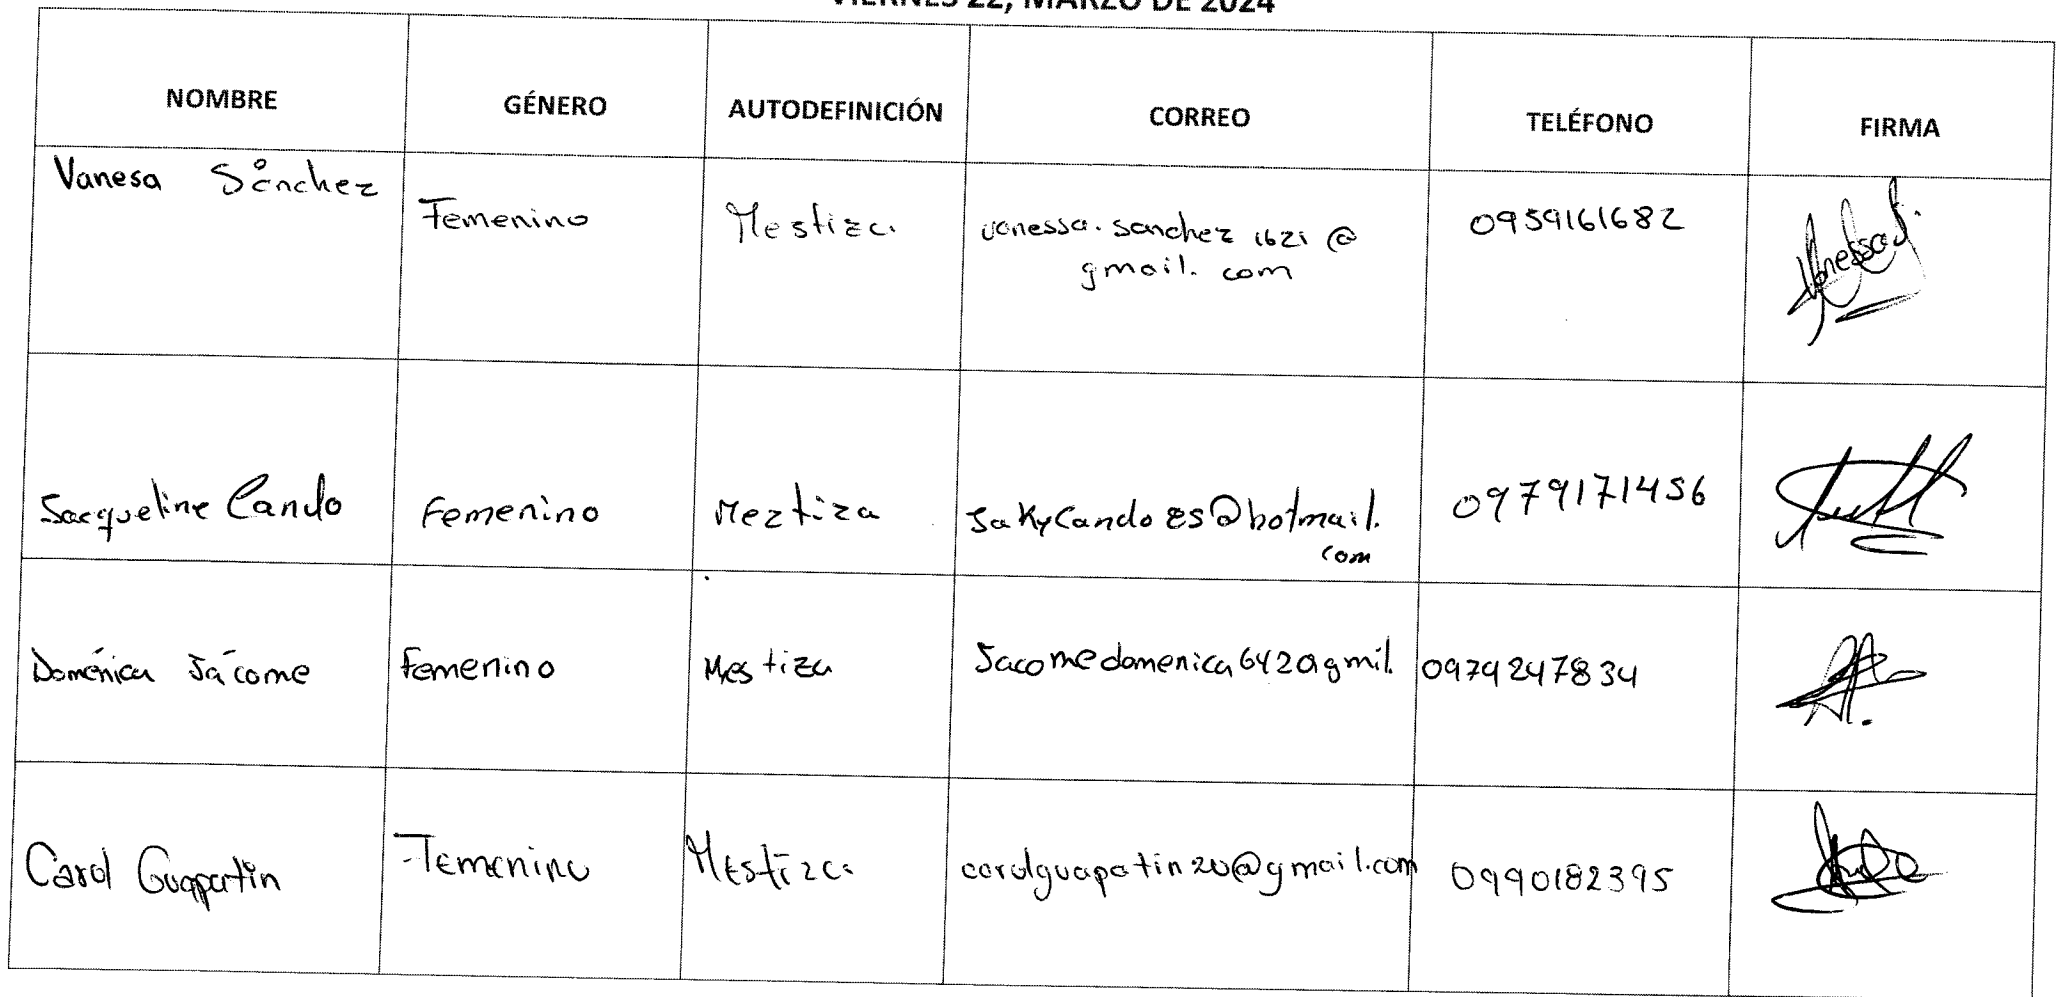 VIERNES 22, MARZO DE 2024
NOMBRE GÉNERO AUTODEFINICIÓN CORREO TELÉFONO FIRMA
Vanesa Sánchez Femenino Mestiza vanessa.sanchez1621@ 0959161682
gmail.com
Jacqueline Cando Femenino Meztiza 0979171456
com
Doménica Jácome Femenino Mestiza 0979247834
Carol Guapatin Femenino Mestiza carolguapatin20@gmail.com 0990182395